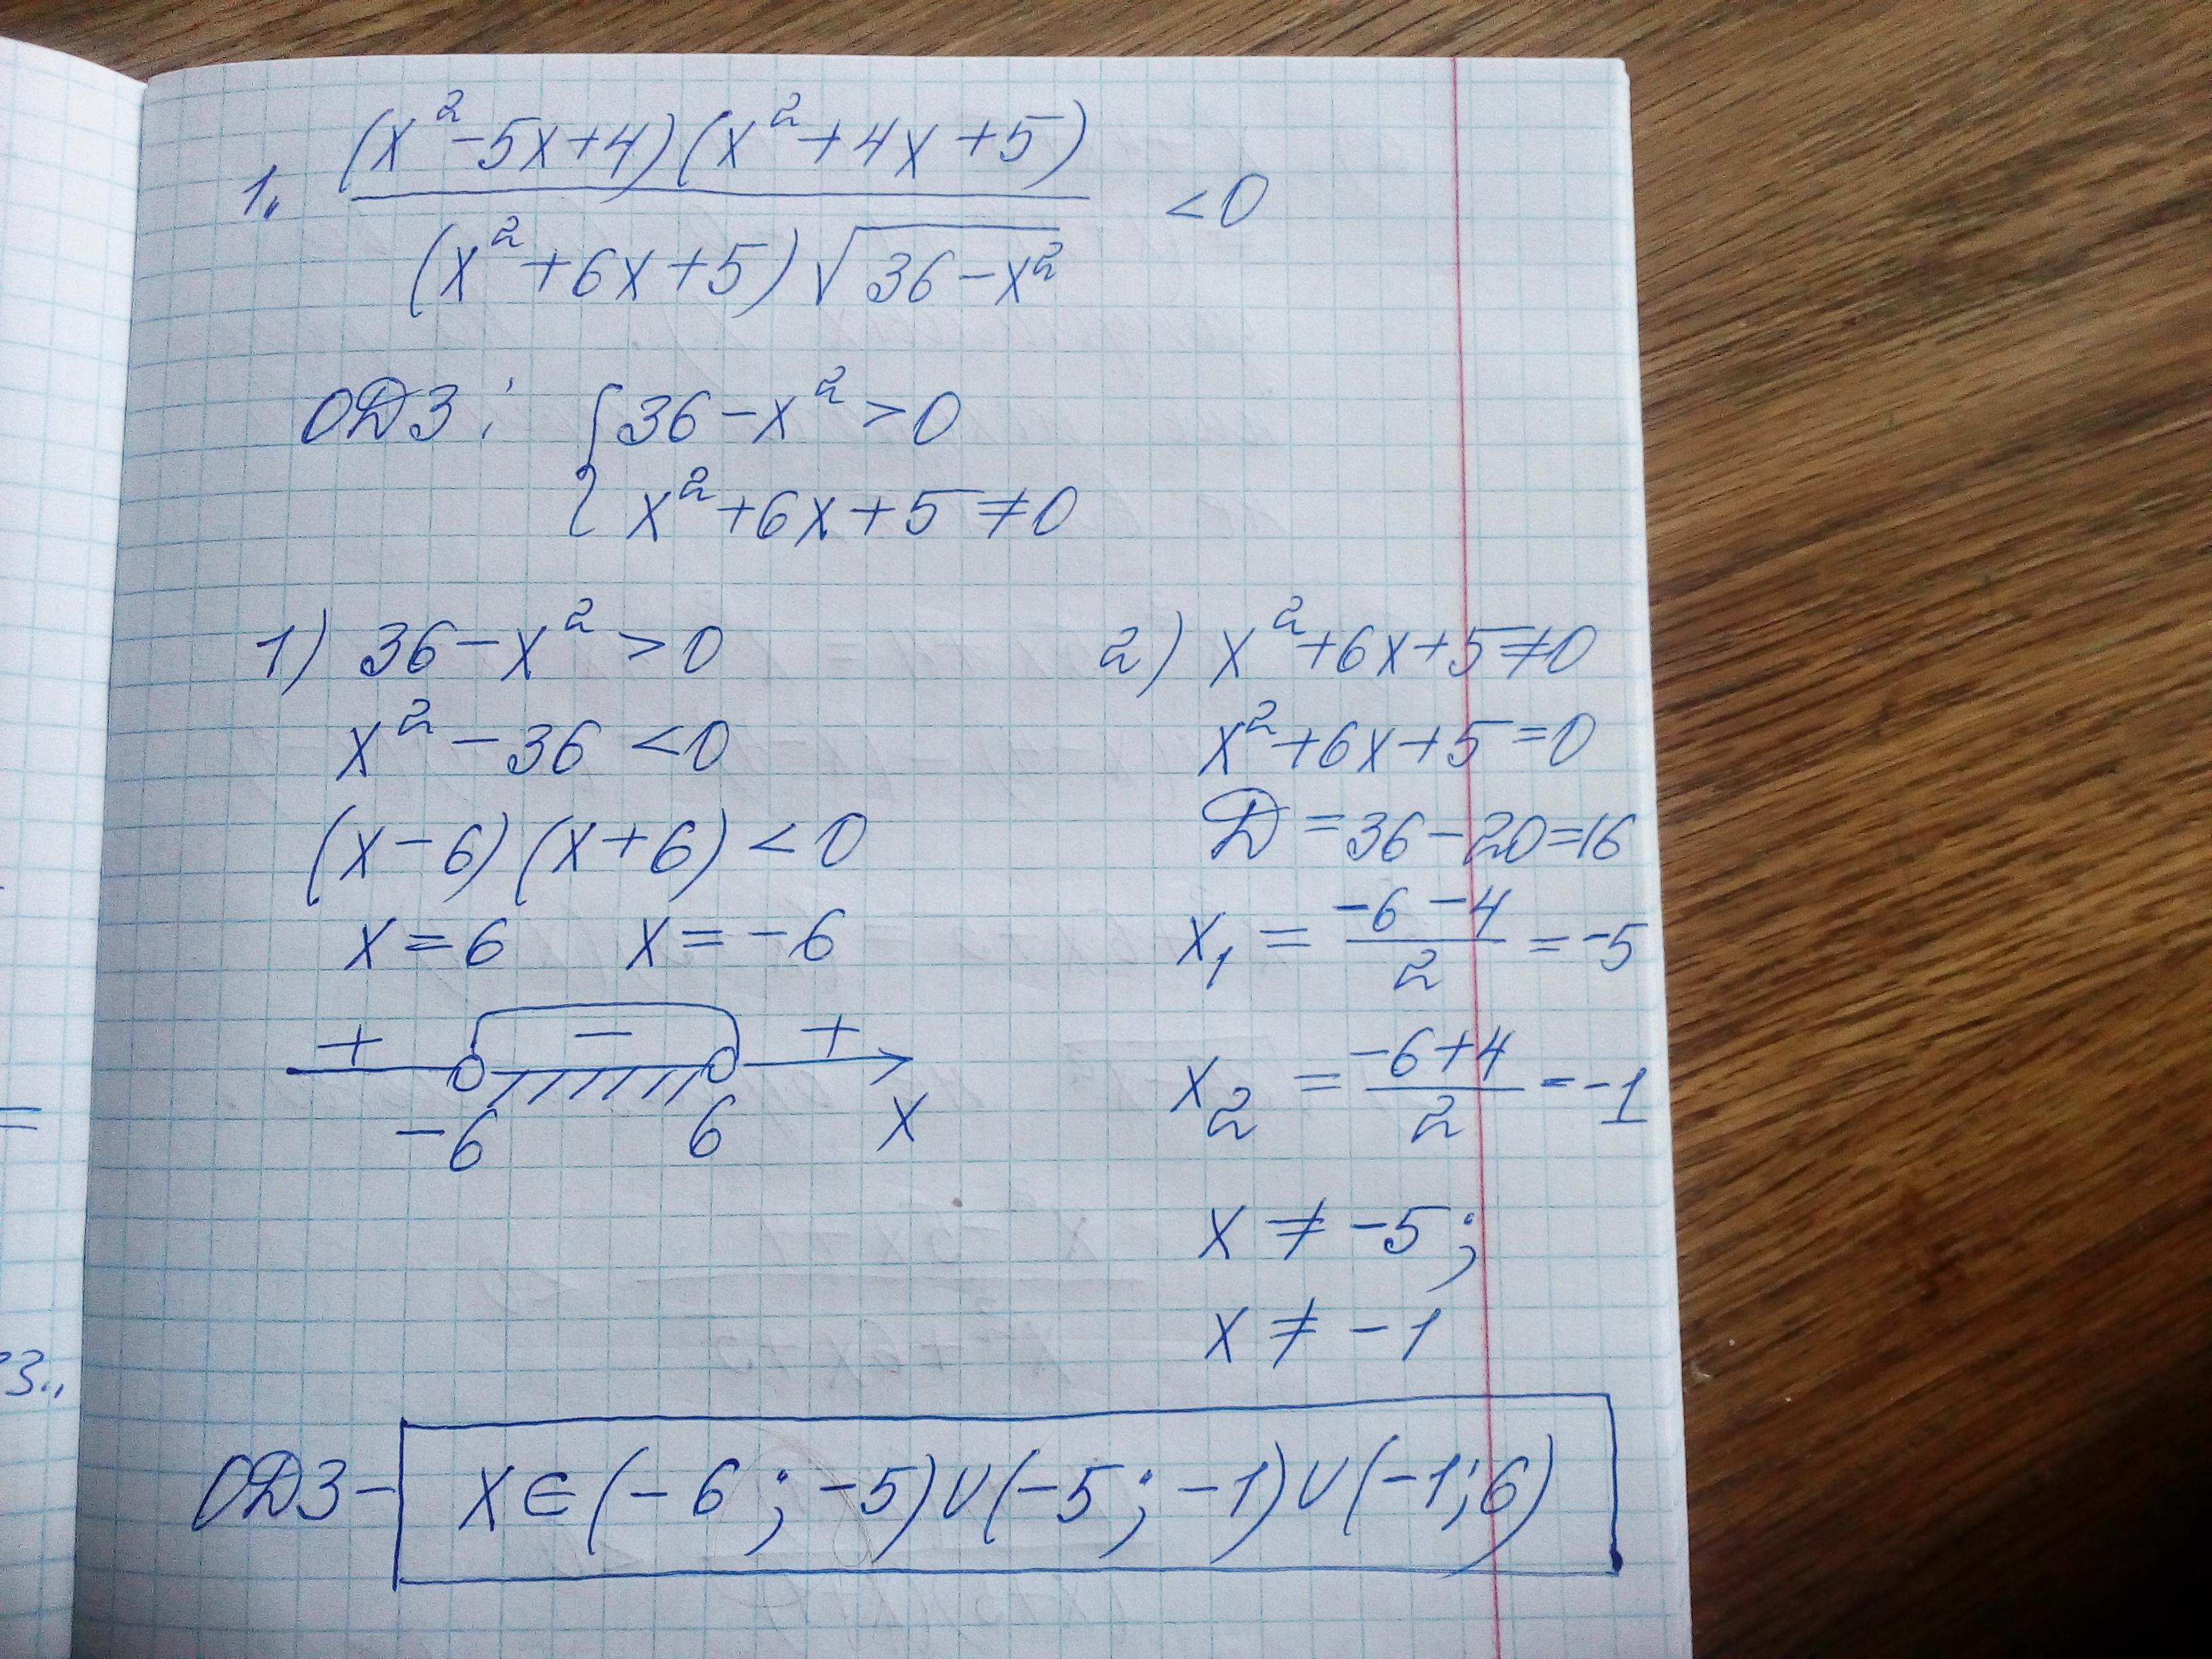 1. (x²-5x+4)(x²+4x+5) / (x²+6x+5)√36-x² <0
ОДЗ: { 36-x²>0
x²+6x+5≠0
1) 36-x²>0
x²-36<0
(x-6)(x+6)<0
x=6 x=-6
+ - +
-6 6 x
2) x²+6x+5≠0
x²+6x+5=0
Д=36-20=16
x₁ = -6-4 / 2 = -5
x₂ = -6+4 / 2 = -1
x ≠ -5;
x ≠ -1
ОДЗ- x∈(-6; -5)∪(-5; -1)∪(-1;6)
=
3.,